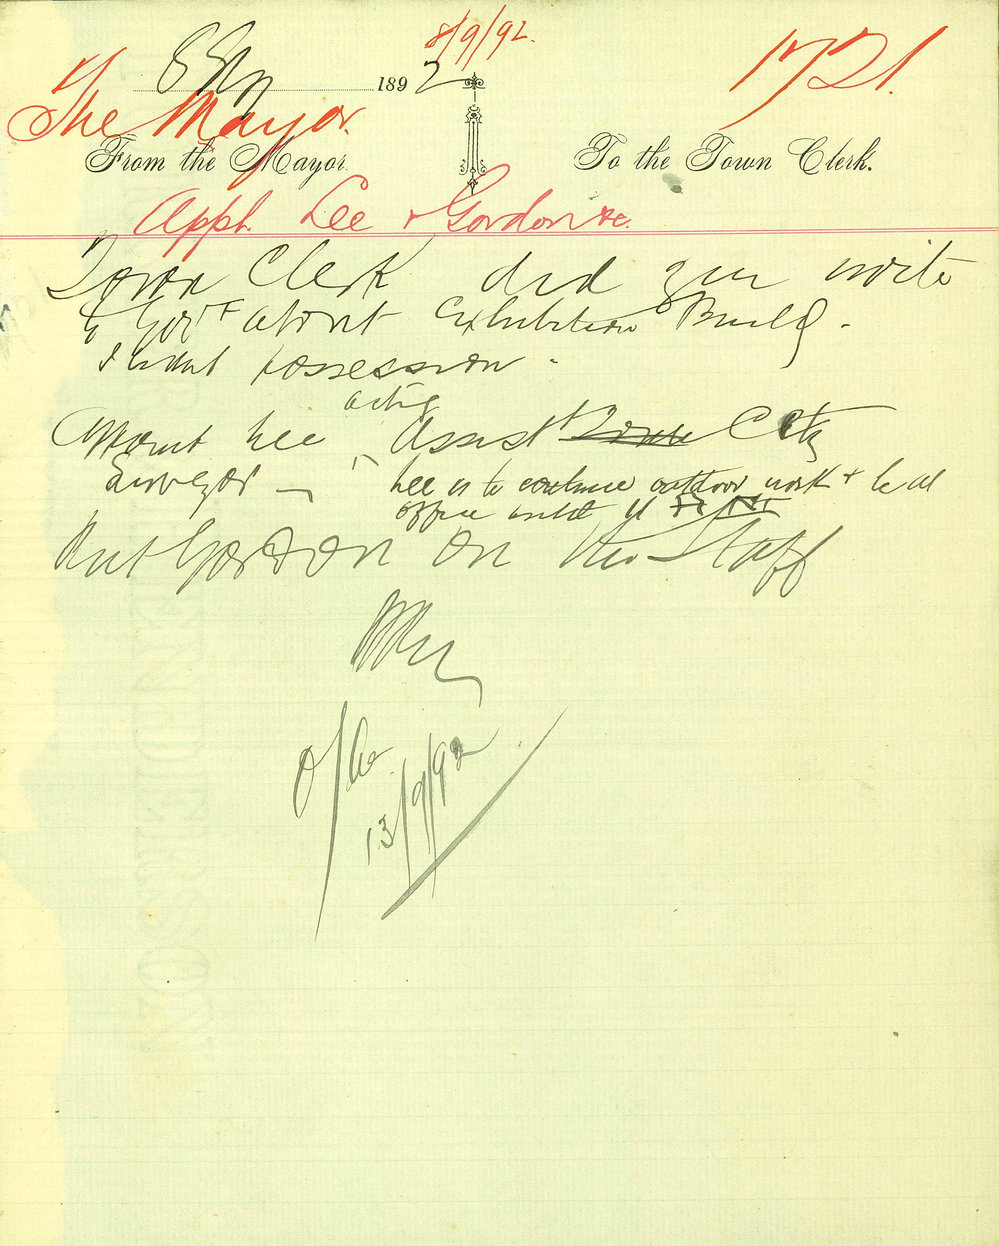 8/9/92.
1721.
8 Sep 1892
The Mayor.
From the Mayor. To the Town Clerk.
Appt. Lee & Gordon &c.
Town Clerk did you write
to Govt about Exhibition Build.
I want possession.
acting
Appoint Lee Assist Town City
Surveyor Lee is to continue outdoor work &
office until
Put Gordon on the Staff
13/9/92